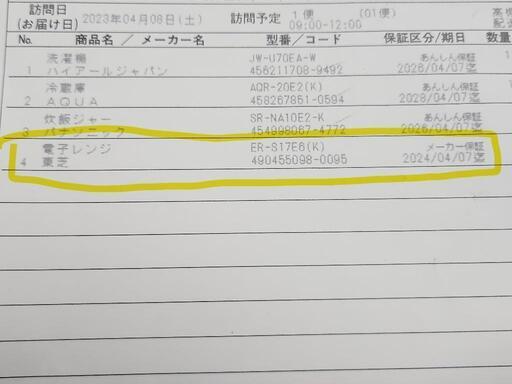 訪問日 (お届け日) 2023年04月08日(土) 訪問予定 1便 (01便) 09:00-12:00
No. 商品名 / メーカー名 型番/コード 保証区分/期日 数量
洗濯機 JW-U70EA-W あんしん保証
1 ハイアールジャパン 456211708-9492 2028/04/07迄
冷蔵庫 AQR-20E2(K) あんしん保証
2 AQUA 458267851-0594 2028/04/07迄
炊飯ジャー SR-NA10E2-K あんしん保証
3 パナソニック 454998067-4772 2028/04/07迄
電子レンジ ER-S17E6(K) メーカー保証
4 東芝 490455098-0095 2024/04/07迄